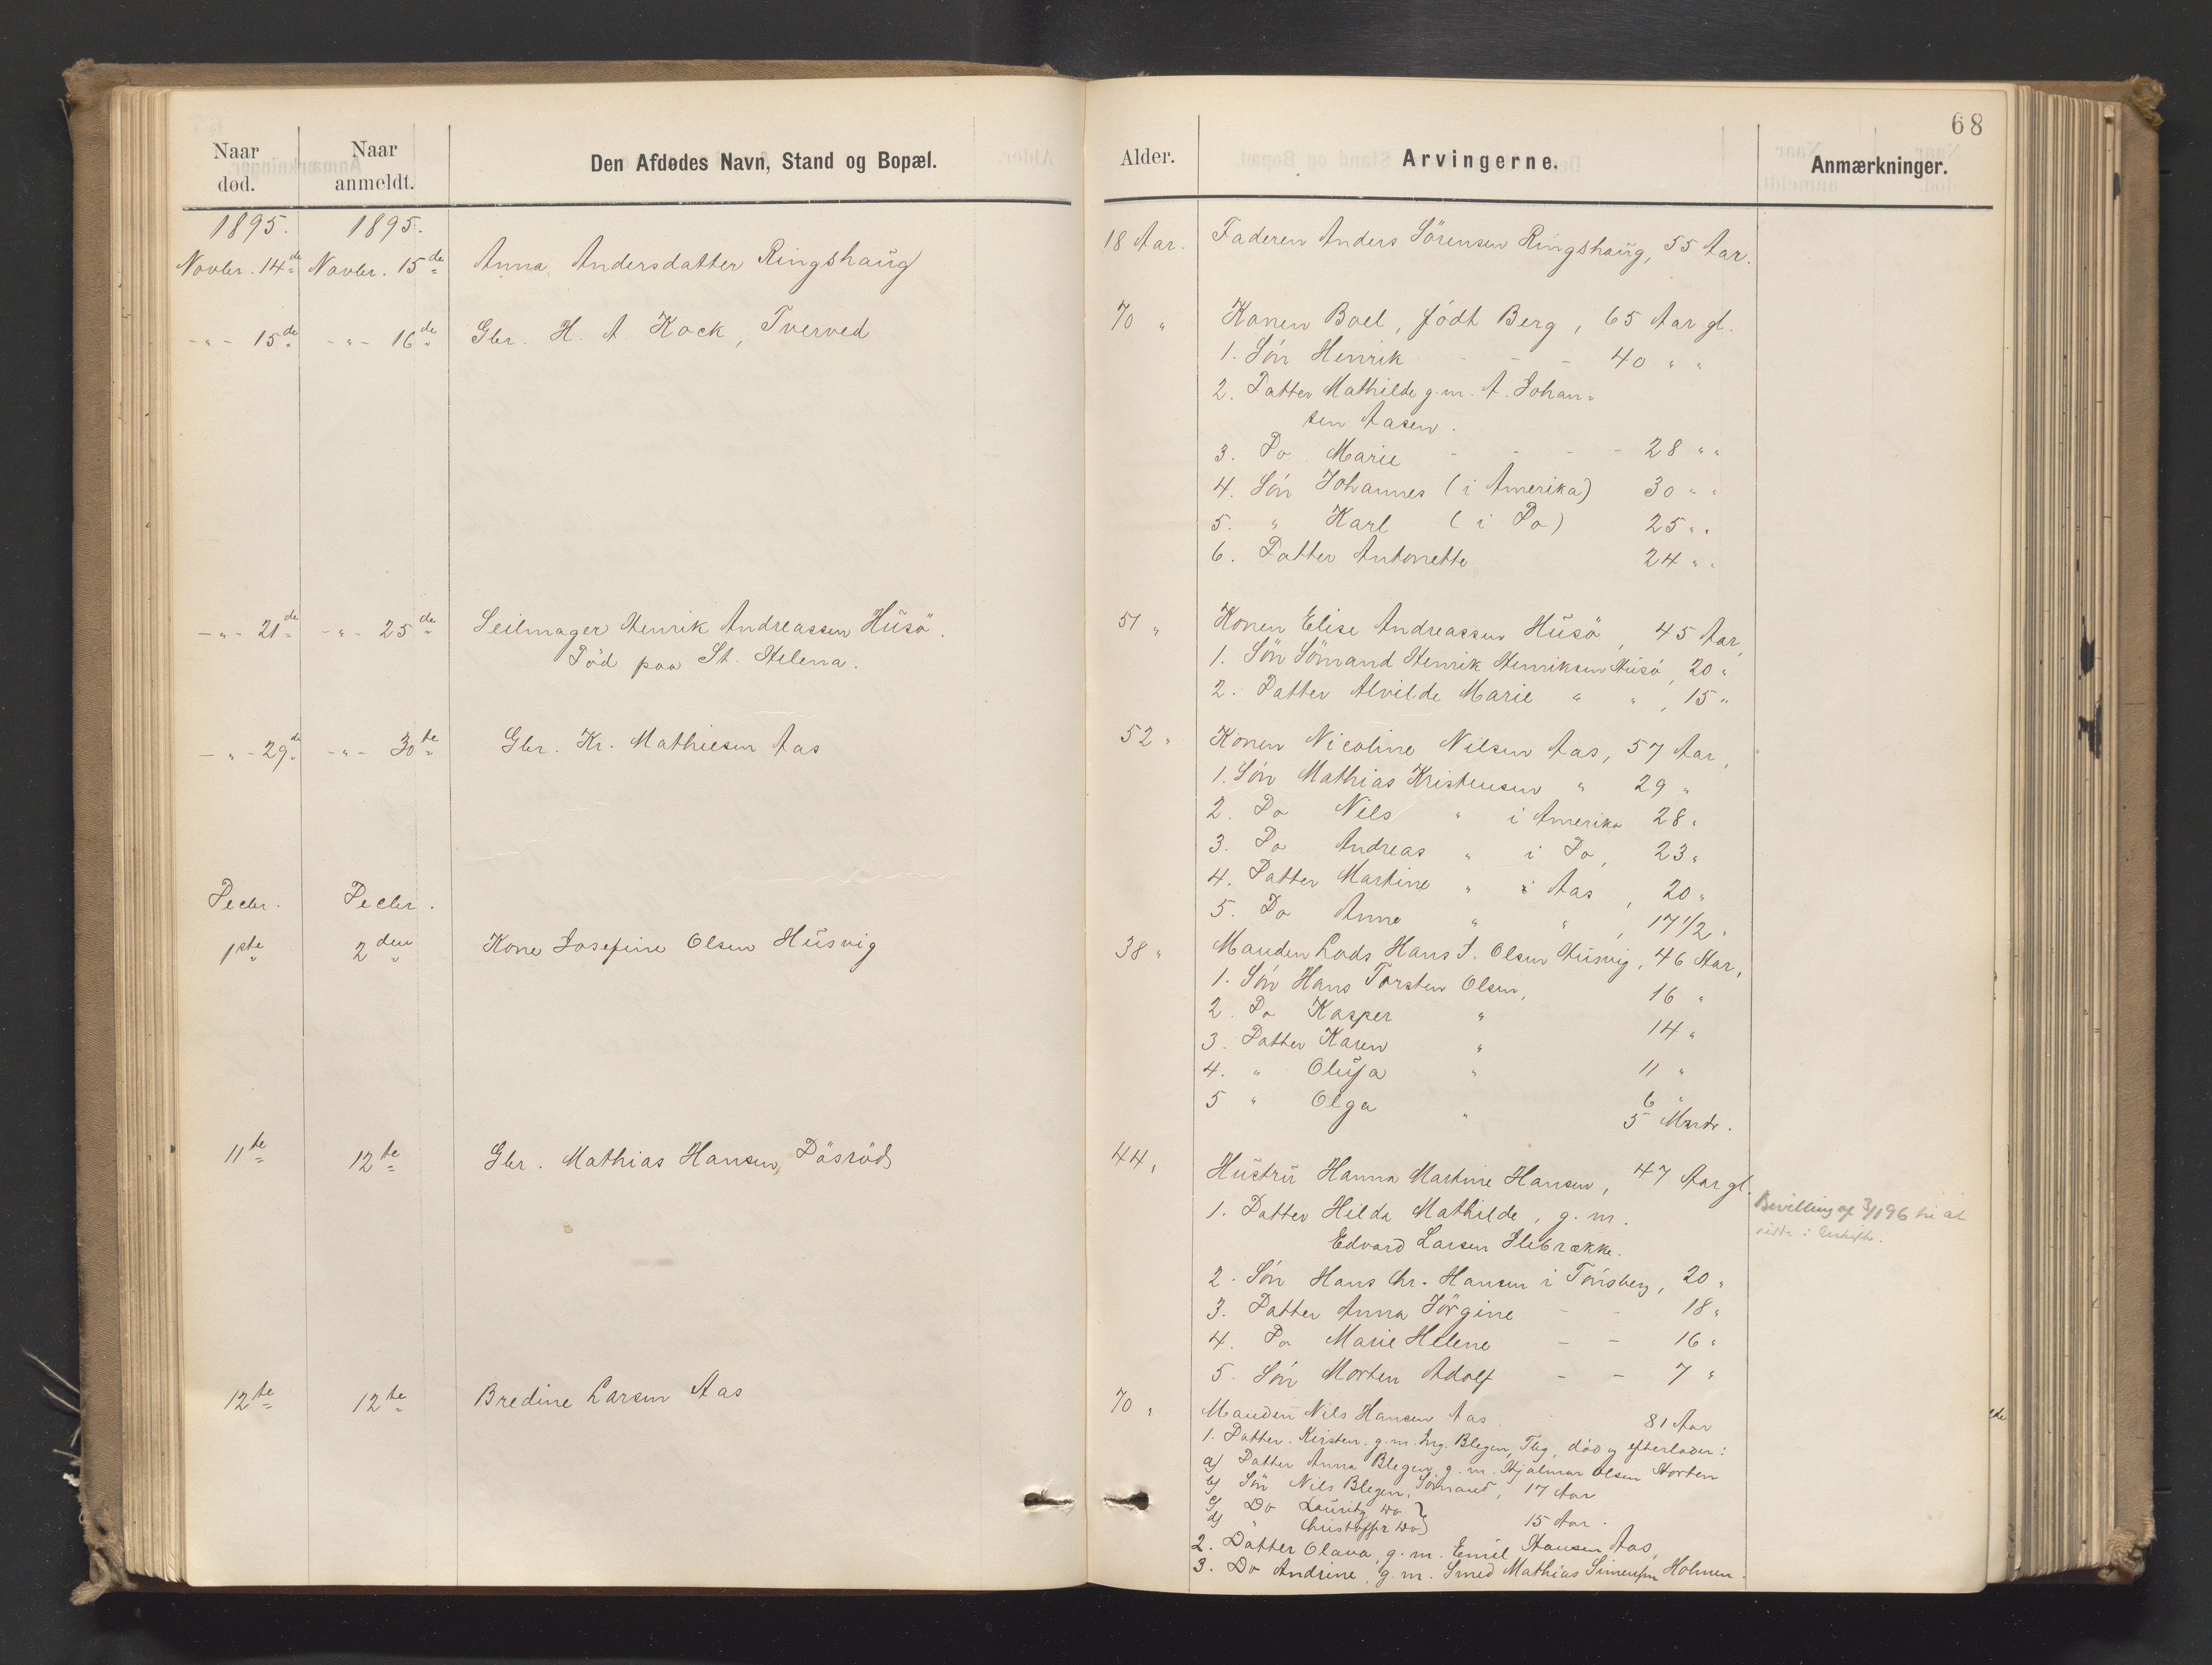 68
Naar død.
Naar anmeldt.
Den Afdødes Navn, Stand og Bopæl.
Alder.
Arvingerne.
Anmærkninger.
1895. 1895.
Novbr. 14de Novbr. 15de Anna Andersdatter Ringshaug
18 Aar. Faderen Anders Sörensen Ringshaug, 55 Aar.
-"- 15de -"- 16de Gbr. H. A. Kock, Tverved
70 " Konen Boel, födt Berg, 65 Aar gl.
1. Sön Henrik - - - 40 " "
2. Datter Mathilde g. m. A. Johan-
sen Aasen.
3. Do Marie - - - - 28 " "
4. Sön Johannes (i Amerika) 30 " "
5. " Karl (i Do) 25 " "
6. Datter Antonette 24 " "
-"- 21de -"- 25de Seilmager Henrik Andreassen Husö.
Död paa St. Helena.
51 " Konen Elise Andreassen Husö, 45 Aar,
1. Sön Sömand Henrik Henriksen Husö, 20 "
2. Datter Alvilde Marie " ", 15 "
-"- 29de -"- 30te Gbr. Kr. Mathiesen Aas
52 " Konen Nicoline Nilsen Aas, 57 Aar,
1. Sön Mathias Kristensen " 29 "
2. Do Nils " i Amerika 28 "
3. Do Andreas " i Do, 23 "
4. Datter Martine " i Aas, 20 "
5. Do Anne " ", 17 1/2 "
Decbr. Decbr.
1ste 2den Kone Josefine Olsen Husvig
38 " Manden Lods Hans J. Olsen Husvig, 46 Aar,
1. Sön Hans Torsten Olsen, 16 "
2. Do Kasper " 14 "
3. Datter Karen " 11 "
4. " Olufa " 6 "
5 " Olga " 5 Mndr.
11te 12te Gbr. Mathias Hansen, Dösröd
44, Hustru Hanna Martine Hansen, 47 Aar gl.
1. Datter Hilda Mathilde, g. m.
Edvard Larsen Ilebrække.
2. Sön Hans Chr. Hansen i Tönsberg, 20 "
3. Datter Anna Jörgine - - 18 "
4. Do Marie Helene - - 16 "
5. Sön Morten Adolf - - 7 "
Bevilling af 3/1 96 til at
12te 12te Bredine Larsen Aas
70 " Manden Nils Hansen Aas 81 Aar
1. Datter Kirsten g. m. Ing. Blegen, Tbg, död og efterlader:
a) Datter Anna Blegen, g. m. Hjalmar Olsen Horten
b) Sön Nils Blegen, Sömand, 17 Aar
c) Do Lauritz Do
d) " Christoffer Do 15 Aar.
2. Datter Olava, g. m. Emil Hansen Aas,
3. Do Andrine, g. m. Smed Mathias Simensen Holmen.